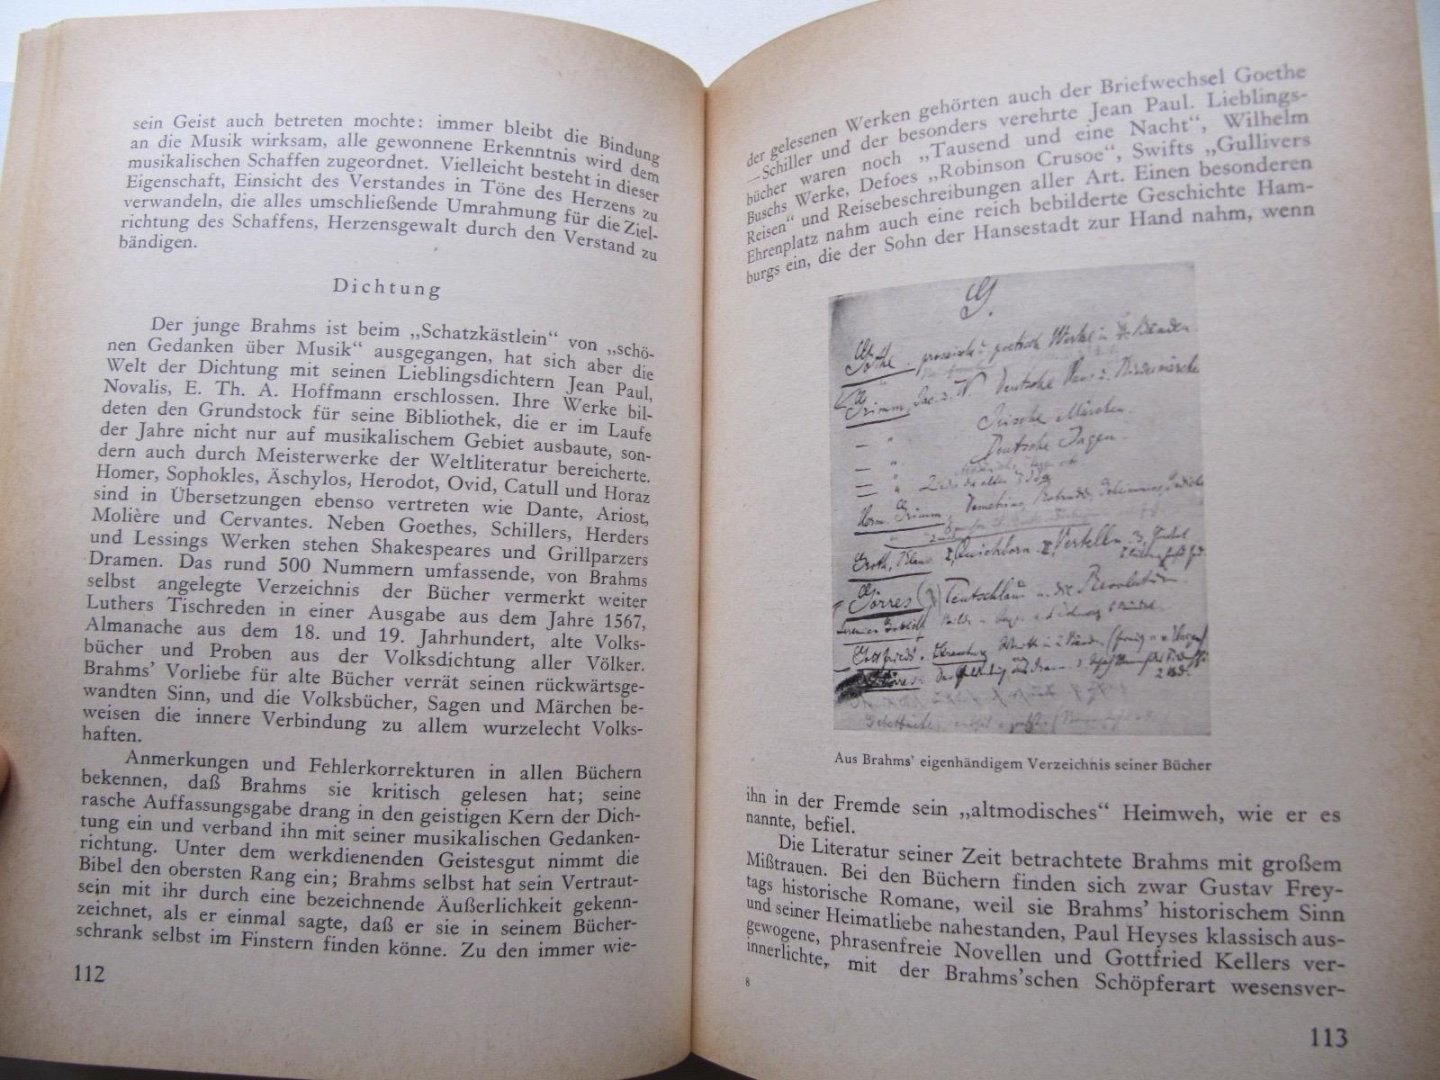 sein Geist auch betreten mochte: immer bleibt die Bindung
an die Musik wirksam, alle gewonnene Erkenntnis wird dem
musikalischen Schaffen zugeordnet. Vielleicht besteht in dieser
Eigenschaft, Einsicht des Verstandes in Töne des Herzens zu
verwandeln, die alles umschließende Umrahmung für die Ziel-
richtung des Schaffens, Herzensgewalt durch den Verstand zu
bändigen.
Dichtung
Der junge Brahms ist beim „Schatzkästlein“ von „schö-
nen Gedanken über Musik“ ausgegangen, hat sich aber die
Welt der Dichtung mit seinen Lieblingsdichtern Jean Paul,
Novalis, E. Th. A. Hoffmann erschlossen. Ihre Werke bil-
deten den Grundstock für seine Bibliothek, die er im Laufe
der Jahre nicht nur auf musikalischem Gebiet ausbaute, son-
dern auch durch Meisterwerke der Weltliteratur bereicherte.
Homer, Sophokles, Äschylos, Herodot, Ovid, Catull und Horaz
sind in Übersetzungen ebenso vertreten wie Dante, Ariost,
Molière und Cervantes. Neben Goethes, Schillers, Herders
und Lessings Werken stehen Shakespeares und Grillparzers
Dramen. Das rund 500 Nummern umfassende, von Brahms
selbst angelegte Verzeichnis der Bücher vermerkt weiter
Luthers Tischreden in einer Ausgabe aus dem Jahre 1567,
Almanache aus dem 18. und 19. Jahrhundert, alte Volks-
bücher und Proben aus der Volksdichtung aller Völker.
Brahms’ Vorliebe für alte Bücher verrät seinen rückwärtsge-
wandten Sinn, und die Volksbücher, Sagen und Märchen be-
weisen die innere Verbindung zu allem wurzelecht Volks-
haften.
Anmerkungen und Fehlerkorrekturen in allen Büchern
bekennen, daß Brahms sie kritisch gelesen hat; seine
rasche Auffassungsgabe drang in den geistigen Kern der Dich-
tung ein und verband ihn mit seiner musikalischen Gedanken-
richtung. Unter dem werkdienenden Geistesgut nimmt die
Bibel den obersten Rang ein; Brahms selbst hat sein Vertraut-
sein mit ihr durch eine bezeichnende Äußerlichkeit gekenn-
zeichnet, als er einmal sagte, daß er sie in seinem Bücher-
schrank selbst im Finstern finden könne. Zu den immer wie-
112
der gelesenen Werken gehörten auch der Briefwechsel Goethe
—Schiller und der besonders verehrte Jean Paul. Lieblings-
bücher waren noch „Tausend und eine Nacht“, Wilhelm
Buschs Werke, Defoes „Robinson Crusoe“, Swifts „Gullivers
Reisen“ und Reisebeschreibungen aller Art. Einen besonderen
Ehrenplatz nahm auch eine reich bebilderte Geschichte Ham-
burgs ein, die der Sohn der Hansestadt zur Hand nahm, wenn
G.
Göthe
Grimm, Jac. u. W. Deutsche
Irische Märchen.
Deutsche Sagen.
Herm. Grimm,
Groth, Klaus Quickborn. Vertelln.
Görres Teutschland u. die Revolution
Aus Brahms’ eigenhändigem Verzeichnis seiner Bücher
ihn in der Fremde sein „altmodisches“ Heimweh, wie er es
nannte, befiel.
Die Literatur seiner Zeit betrachtete Brahms mit großem
Mißtrauen. Bei den Büchern finden sich zwar Gustav Frey-
tags historische Romane, weil sie Brahms’ historischem Sinn
und seiner Heimatliebe nahestanden, Paul Heyses klassisch aus-
gewogene, phrasenfreie Novellen und Gottfried Kellers ver-
innerlichte, mit der Brahms’schen Schöpferart wesensver-
8
113